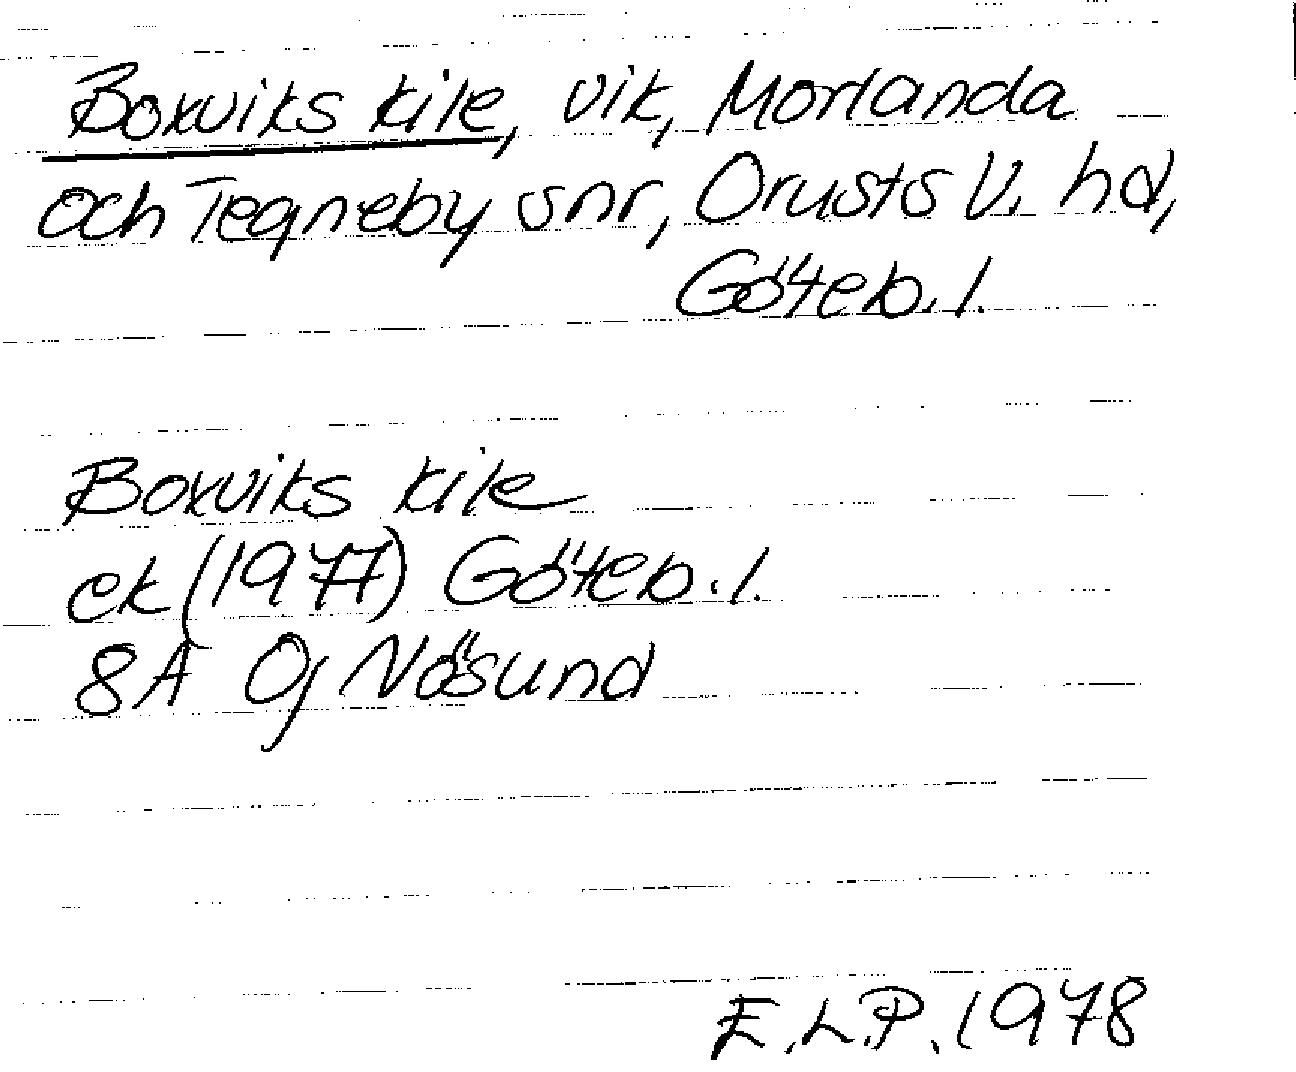 Boxviks kile, vik, Morlanda
och Tegneby snr, Orusts V. hd,
Göteb. l.
Boxviks kile
ek (1977) Göteb. l.
8A 0j Nösund
E.L.P. 1978